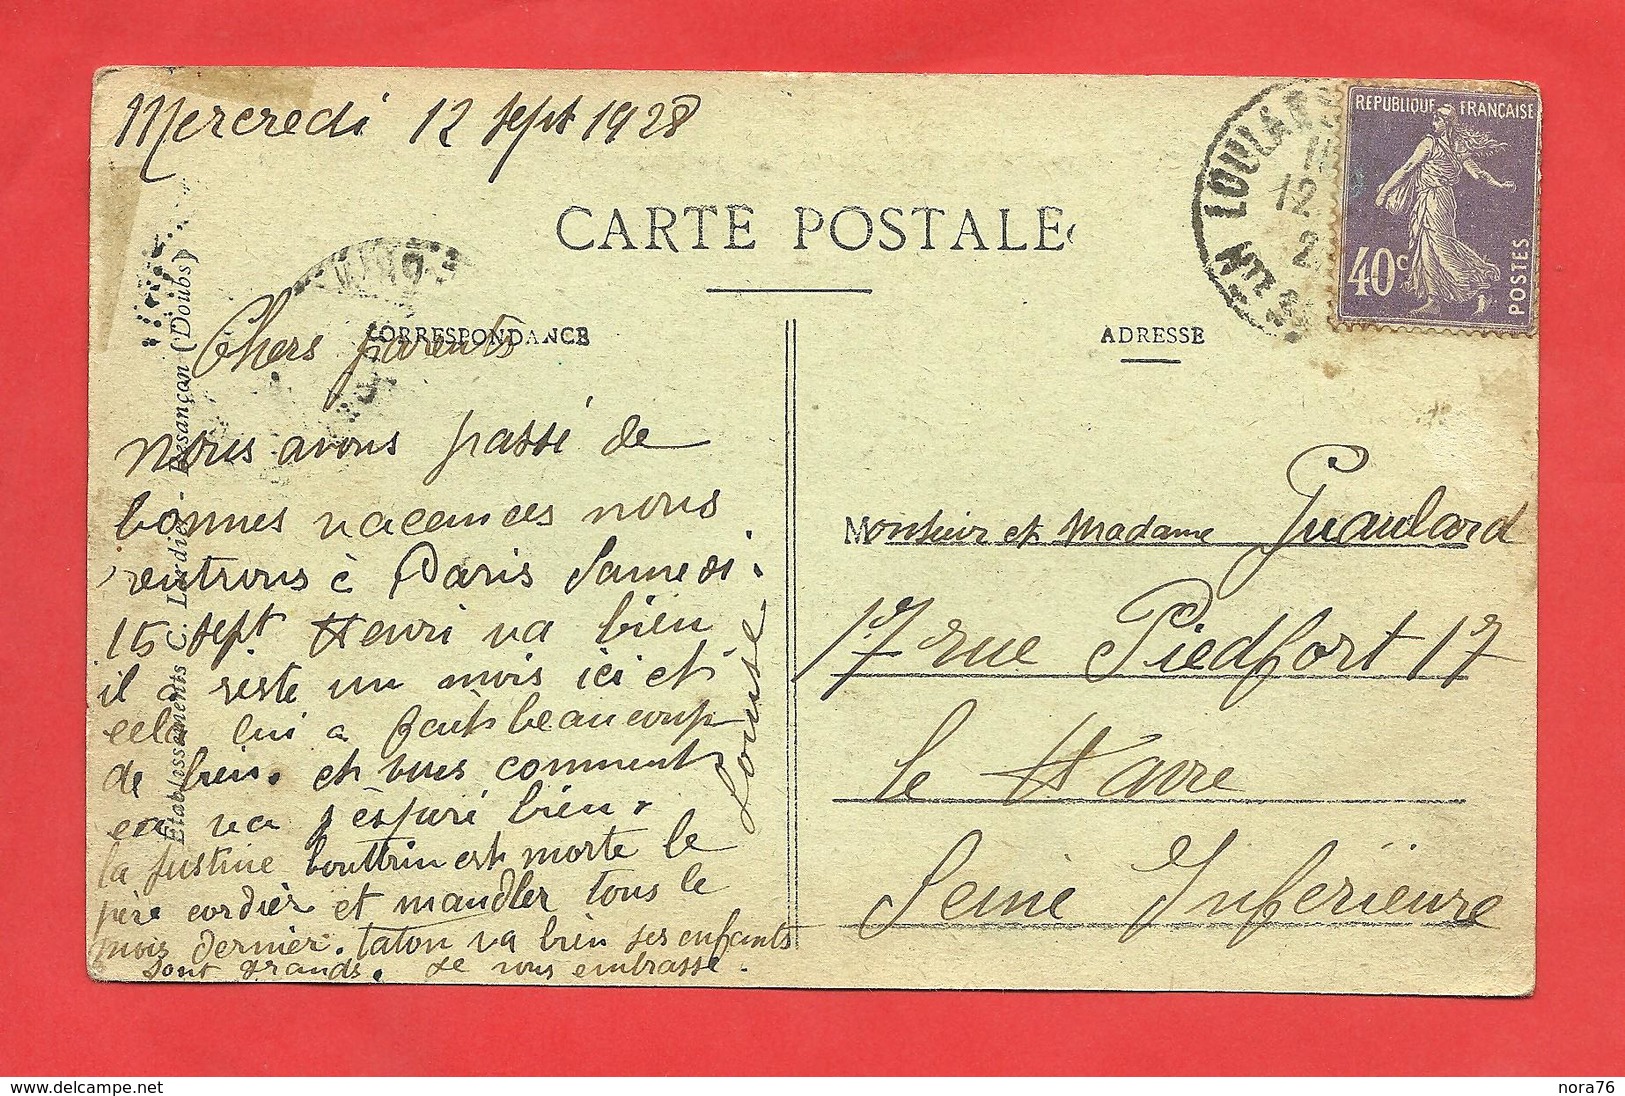 Mercredi 12 sept 1928
CARTE POSTALE
CORRESPONDANCE
ADRESSE
REPUBLIQUE FRANÇAISE
40c
POSTES
12
Chers parents
nous avons passé de
bonnes vacances nous
rentrons à Paris Samedi.
15 sept Henri va bien
il a resté un mois ici et
cela lui a fait beaucoup
de bien. et vous comment
ça va j'éspéré bien.
la justine est morte le
père cordier et mandler tous le
mois dernier. taton va bien ses enfants
sont grands. Je vous embrasse.
Louise
Monsieur et Madame Guaulard
17 rue Piedfort 17
le Havre
Seine Inférieure
Etablissements C. Lardier - Besançon (Doubs)
delcampe.net
nora76